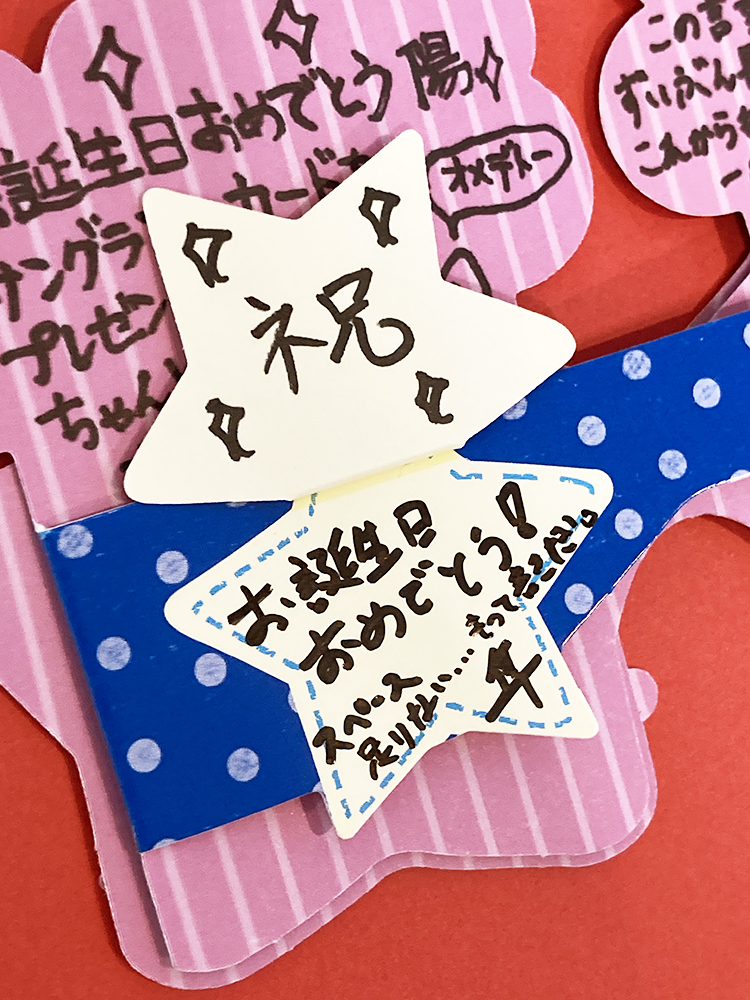 誕生日おめでとう 陽
オメデトー
サングラ
カード
プレゼン
ちゃん
この言
ずいぶん
これから
祝
お誕生日
おめでとう!
スペース
足りない…